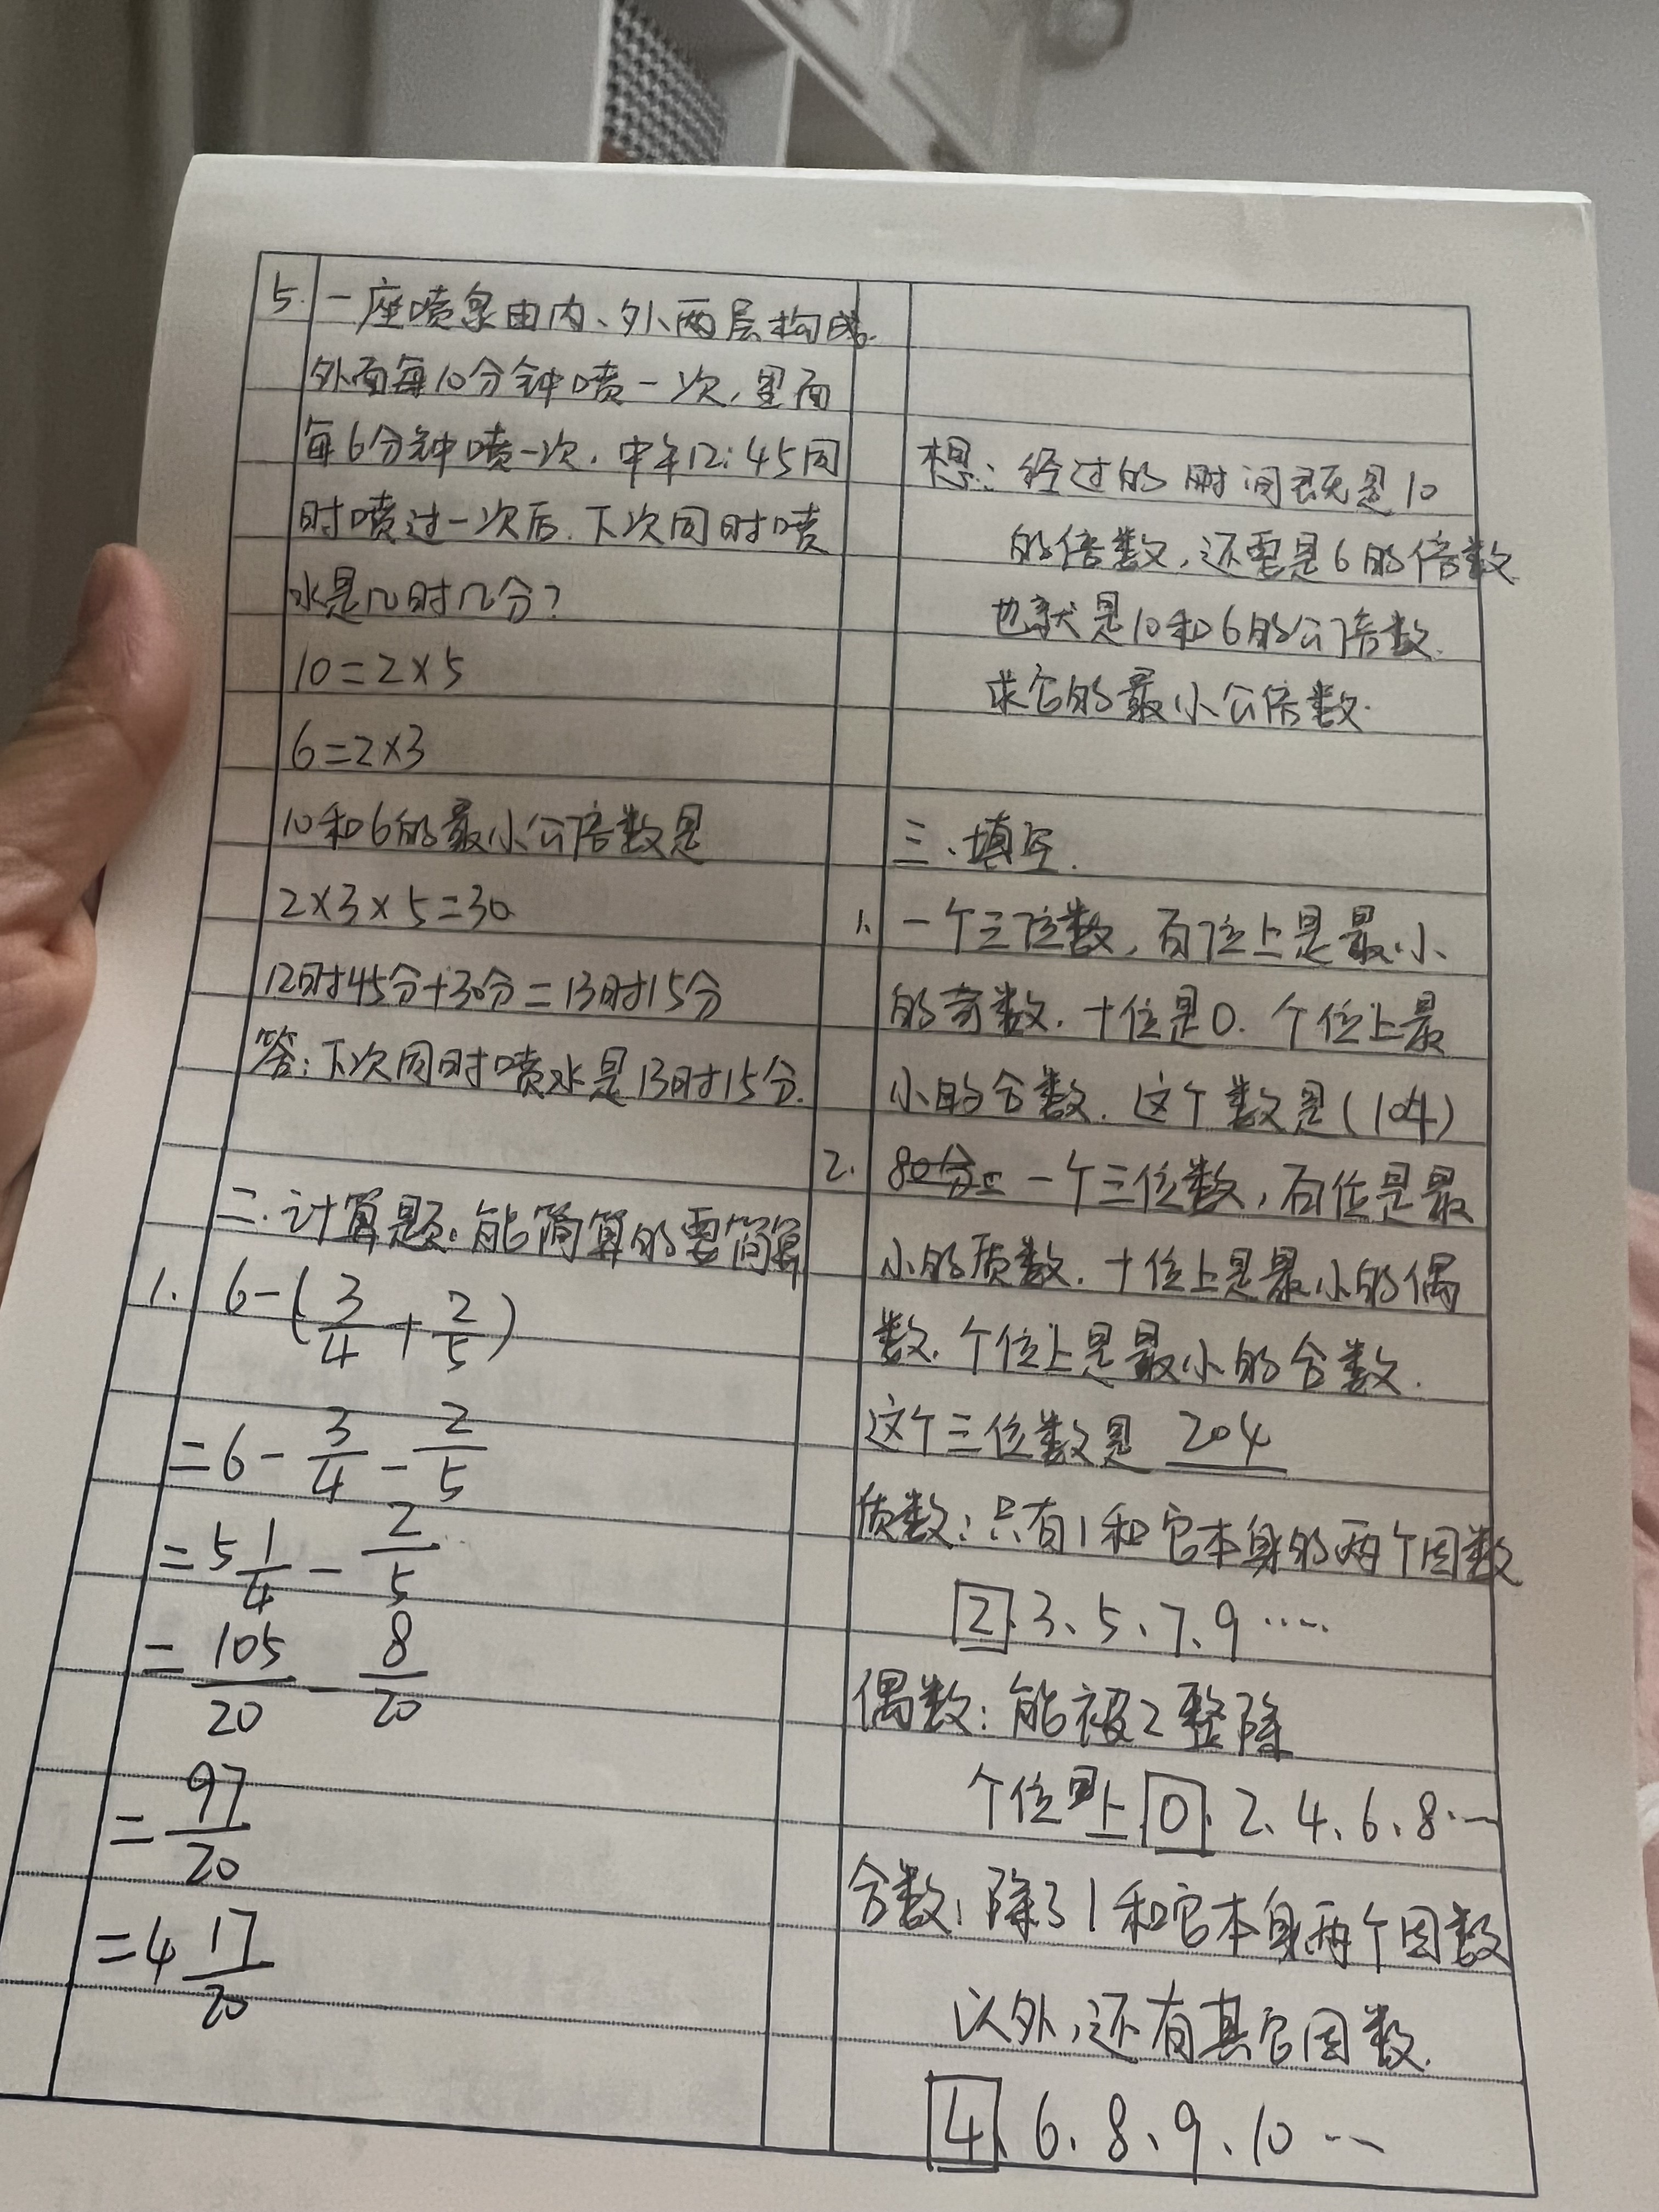 5. 一座喷泉由内、外两层构成.
外面每10分钟喷一次,里面
每6分钟喷一次.中午12:45同
时喷过一次后.下次同时喷
水是几时几分?
10=2×5
6=2×3
10和6的最小公倍数是
2×3×5=30
12时45分+30分=13时15分
答:下次同时喷水是13时15分.
二.计算题.能简算的要简算
1. 6-(3/4+2/5)
=6-3/4-2/5
=5 1/4-2/5
=105/20-8/20
=97/20
=4 17/20
想:经过的时间既是10
的倍数,还要是6的倍数
也就是10和6的公倍数.
求它的最小公倍数.
三、填空.
1. 一个三位数,百位上是最小
的奇数.十位是0.个位上最
小的合数.这个数是(104)
2. 80分 一个三位数,百位是最
小的质数.十位上是最小的偶
数.个位上是最小的合数.
这个三位数是 204
质数:只有1和它本身的两个因数
2.3、5、7、9……
偶数:能被2整除
个位 上 0.2、4、6、8……
合数:除了1和它本身两个因数
以外,还有其它因数.
4、6、8、9、10……